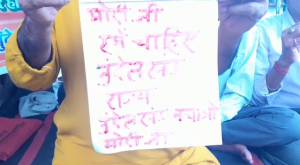 मोदी जी
हमें चाहिए
बुंदेलखण्ड
राज्य
बुंदेलखण्ड बचाओ
मोदी जी